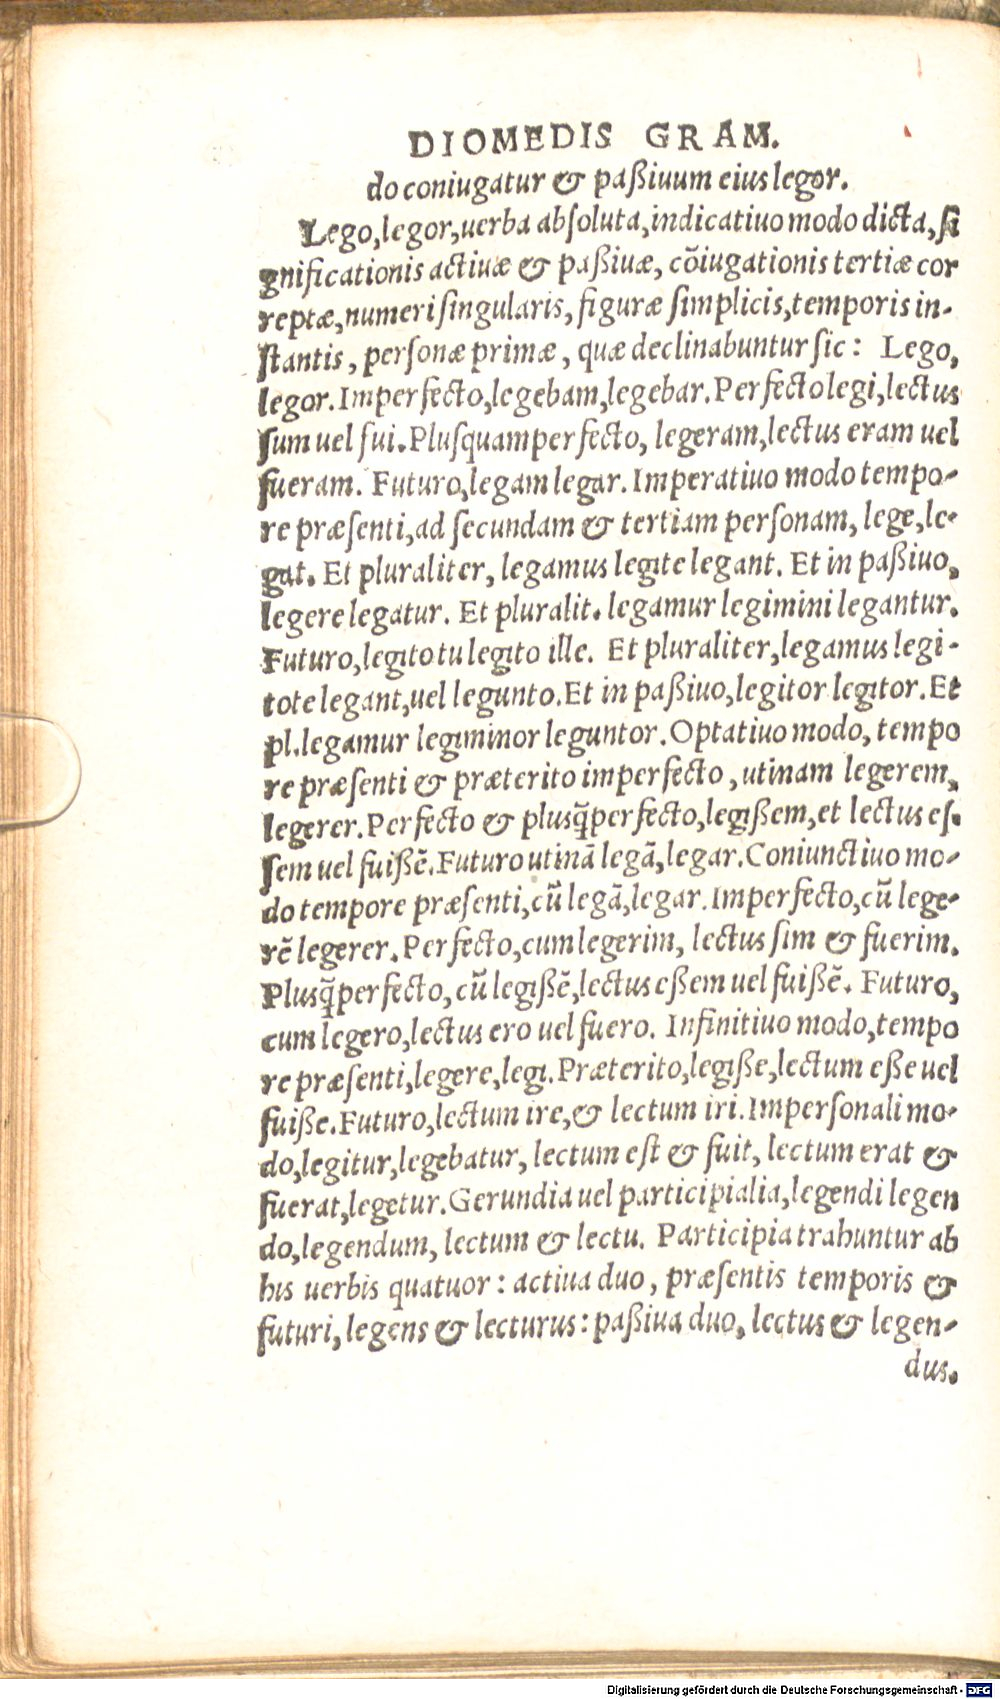 DIOMEDIS GRAM.
do coniugatur & paßiuum eius legor.
Lego, legor, uerba absoluta, indicatiuo modo dicta, si
gnificationis actiuæ & paßiuæ, cōiugationis tertiæ cor
reptæ, numeri singularis, figuræ simplicis, temporis in-
stantis, personæ primæ, quæ declinabuntur sic: Lego,
legor. Imperfecto, legebam, legebar. Perfecto legi, lectus
sum uel fui. Plusquamperfecto, legeram, lectus eram uel
fueram. Futuro, legam legar. Imperatiuo modo tempo-
re præsenti, ad secundam & tertiam personam, lege, le-
gat. Et pluraliter, legamus legite legant. Et in paßiuo,
legere legatur. Et pluralit. legamur legimini legantur.
Futuro, legito tu legito ille. Et pluraliter, legamus legi-
tote legant, uel legunto. Et in paßiuo, legitor legitor. Et
pl. legamur legiminor leguntor. Optatiuo modo, tempo
re præsenti & præterito imperfecto, utinam legerem,
legerer. Perfecto & plusq̃perfecto, legißem, et lectus es-
sem uel fuißē. Futuro utinā legā, legar. Coniunctiuo mo-
do tempore præsenti, cū legā, legar. Imperfecto, cū lege-
rē legerer. Perfecto, cum legerim, lectus sim & fuerim.
Plusq̃perfecto, cū legißē, lectus eßem uel fuißē. Futuro,
cum legero, lectus ero uel fuero. Infinitiuo modo, tempo
re præsenti, legere, legi. Præterito, legiße, lectum eße uel
fuiße. Futuro, lectum ire, & lectum iri. Impersonali mo-
do, legitur, legebatur, lectum est & fuit, lectum erat &
fuerat, legetur. Gerundia uel participialia, legendi legen
do, legendum, lectum & lectu. Participia trahuntur ab
his uerbis quatuor: actiua duo, præsentis temporis &
futuri, legens & lecturus: paßiua duo, lectus & legen-
dus.
Digitalisierung gefördert durch die Deutsche Forschungsgemeinschaft - DFG